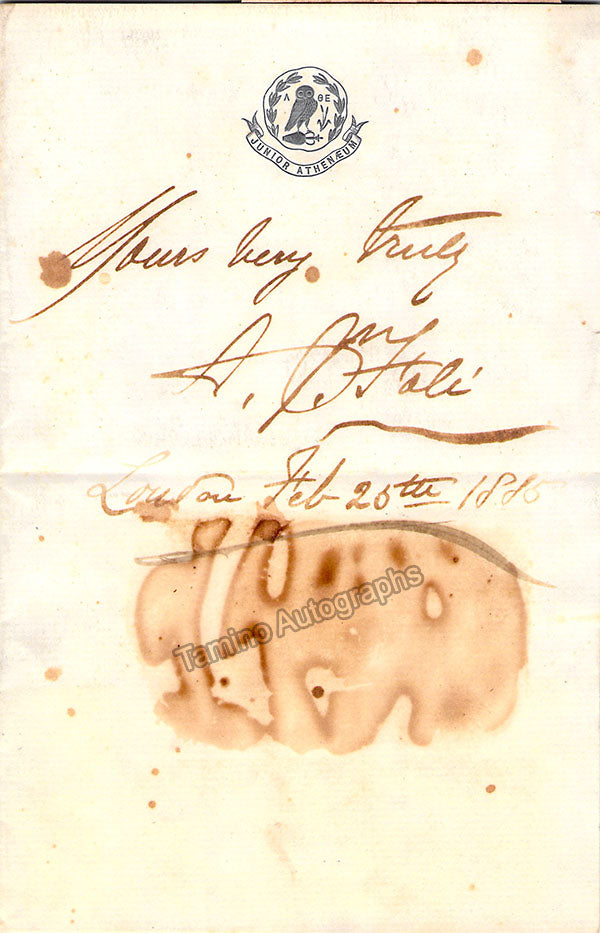 Α ΘΕ
JUNIOR ATHENÆUM
Yours very truly
A. J. Foli
London Feb 25th 1885
Tamino Autographs